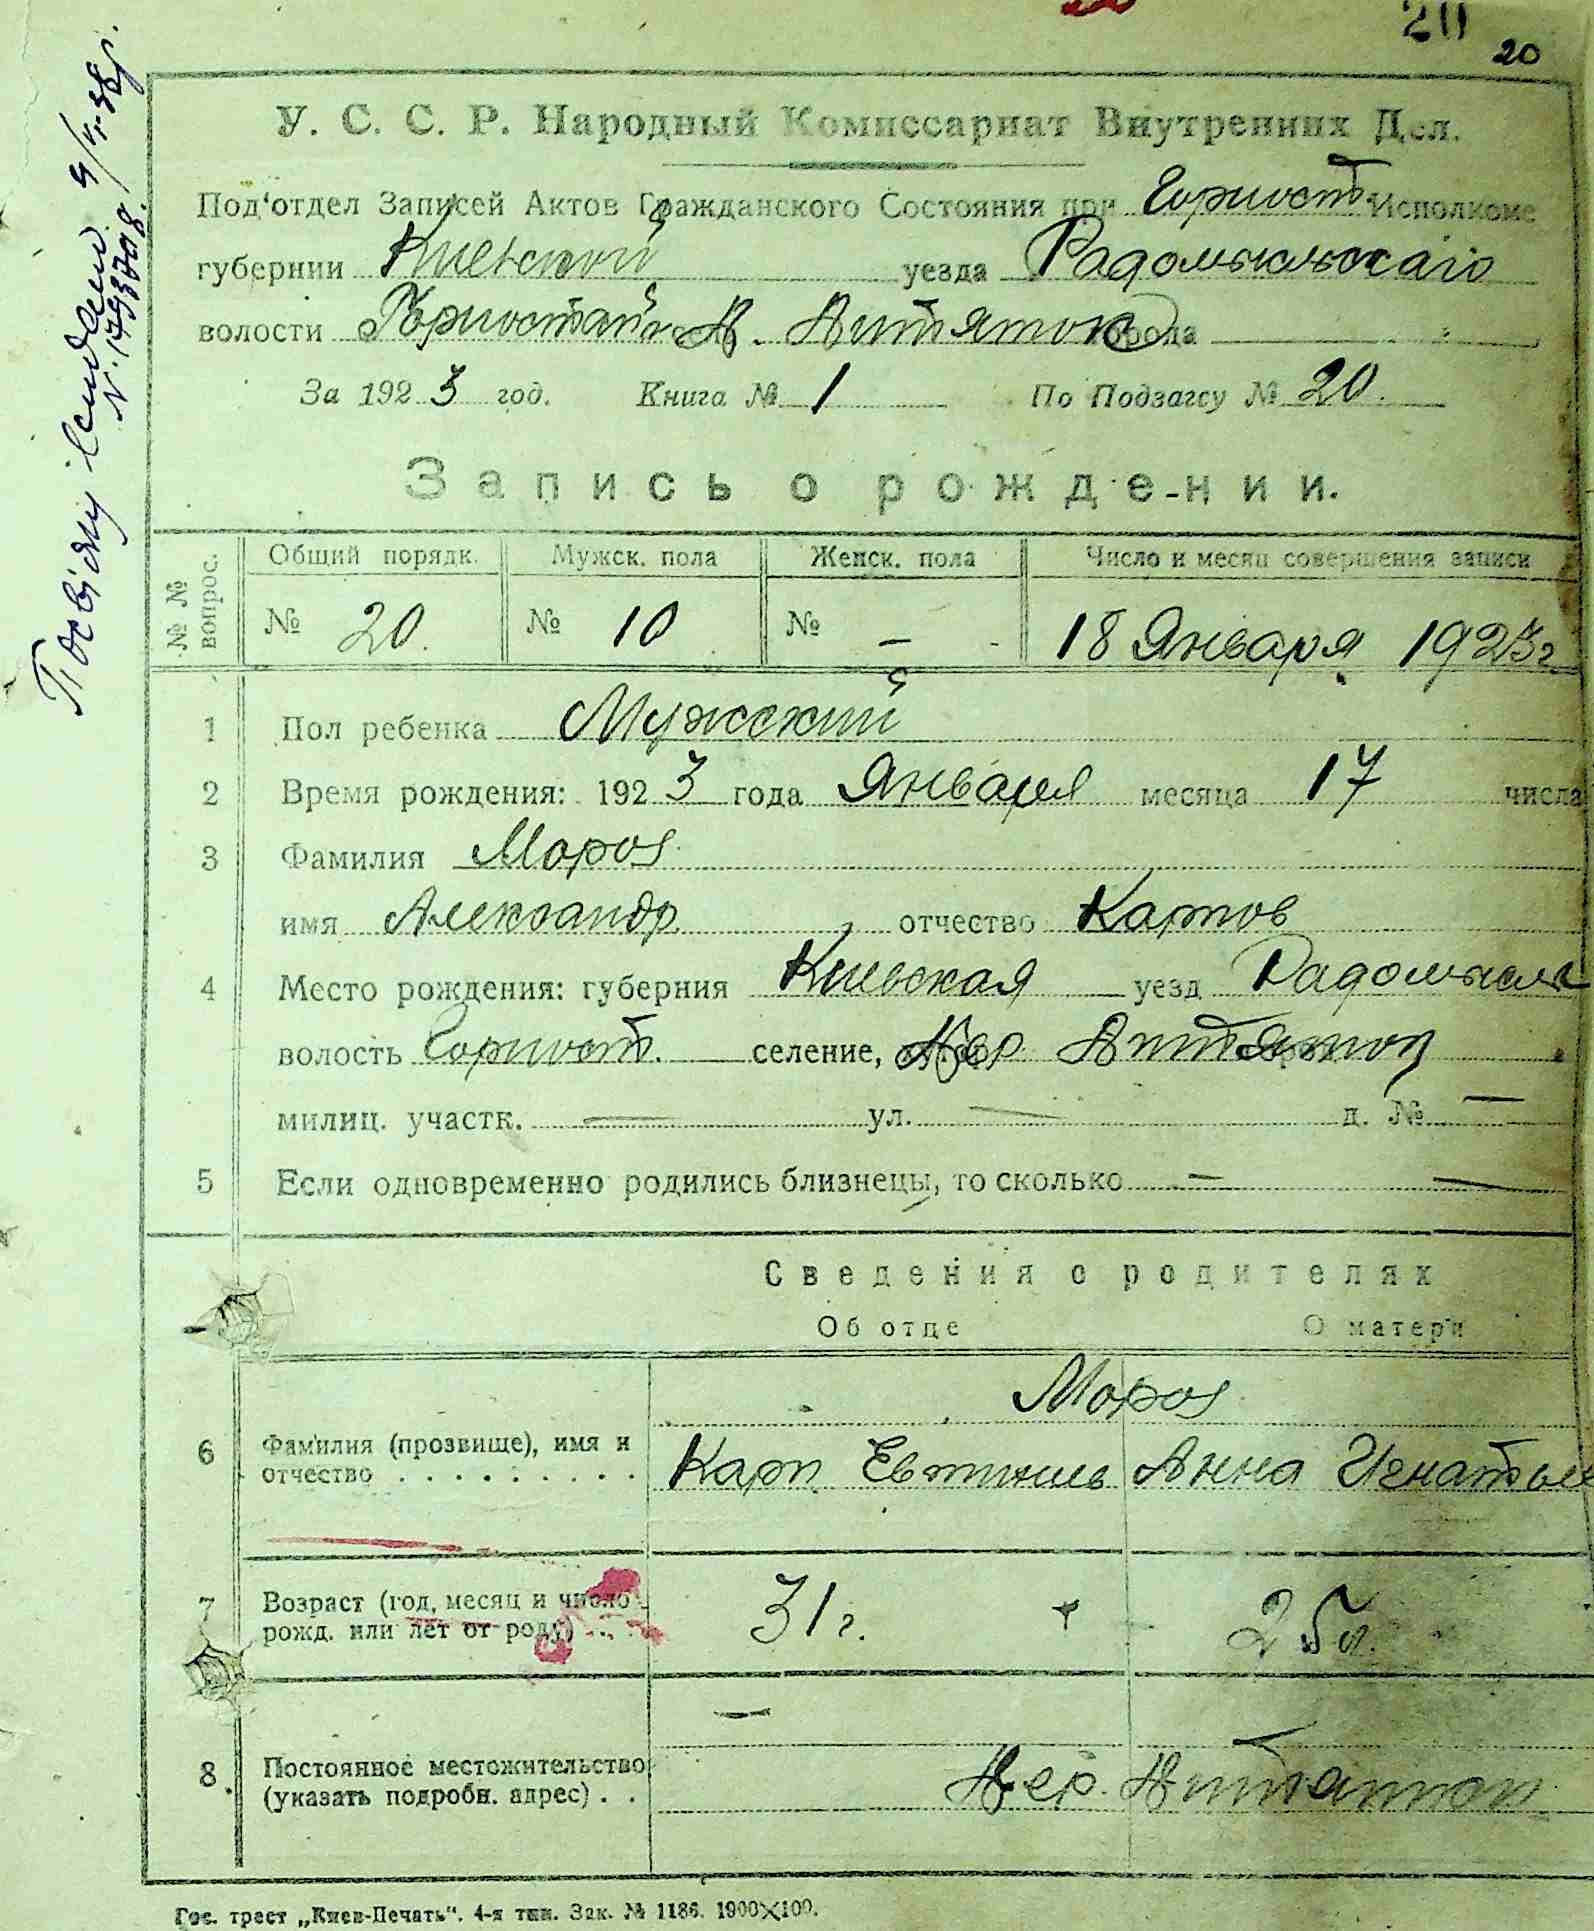 20
20
У. С. С. Р. Народный Комиссариат Внутренних Дел.
Под'отдел Записей Актов Гражданского Состояния при Горност. Исполкоме
губернии Киевской уезда Радомысльскаго
волости Горностайп. д. Дитяток города
За 1923 год. Книга № 1 По Подзагсу № 20.
Запись о рождении.
№ № вопрос.
Общий порядк. Мужск. пола Женск. пола Число и месяц совершения записи
№ 20. № 10 № — 18 Января 1923 г.
1 Пол ребенка Мужский
2 Время рождения: 1923 года Января месяца 17 числа
3 Фамилия Мороз
имя Александр отчество Карпов
4 Место рождения: губерния Киевская уезд Радомысль
волость Горност. селение, дер Дитятки
милиц. участк. — ул. — д. № —
5 Если одновременно родились близнецы, то сколько — —
Сведения о родителях
Об отце О матери
Мороз
6 Фамилия (прозвище), имя и отчество . . . . . . . . . . Карп Евтихиев Анна Игнатьев
7 Возраст (год, месяц и число рожд. или лет от роду) . . . 31 г. 25 л.
8 Постоянное местожительство (указать подробн. адрес) . . — дер. Дитятки
Гос. трест „Киев-Печать“. 4-я тип. Зак. № 1186. 1900×100.